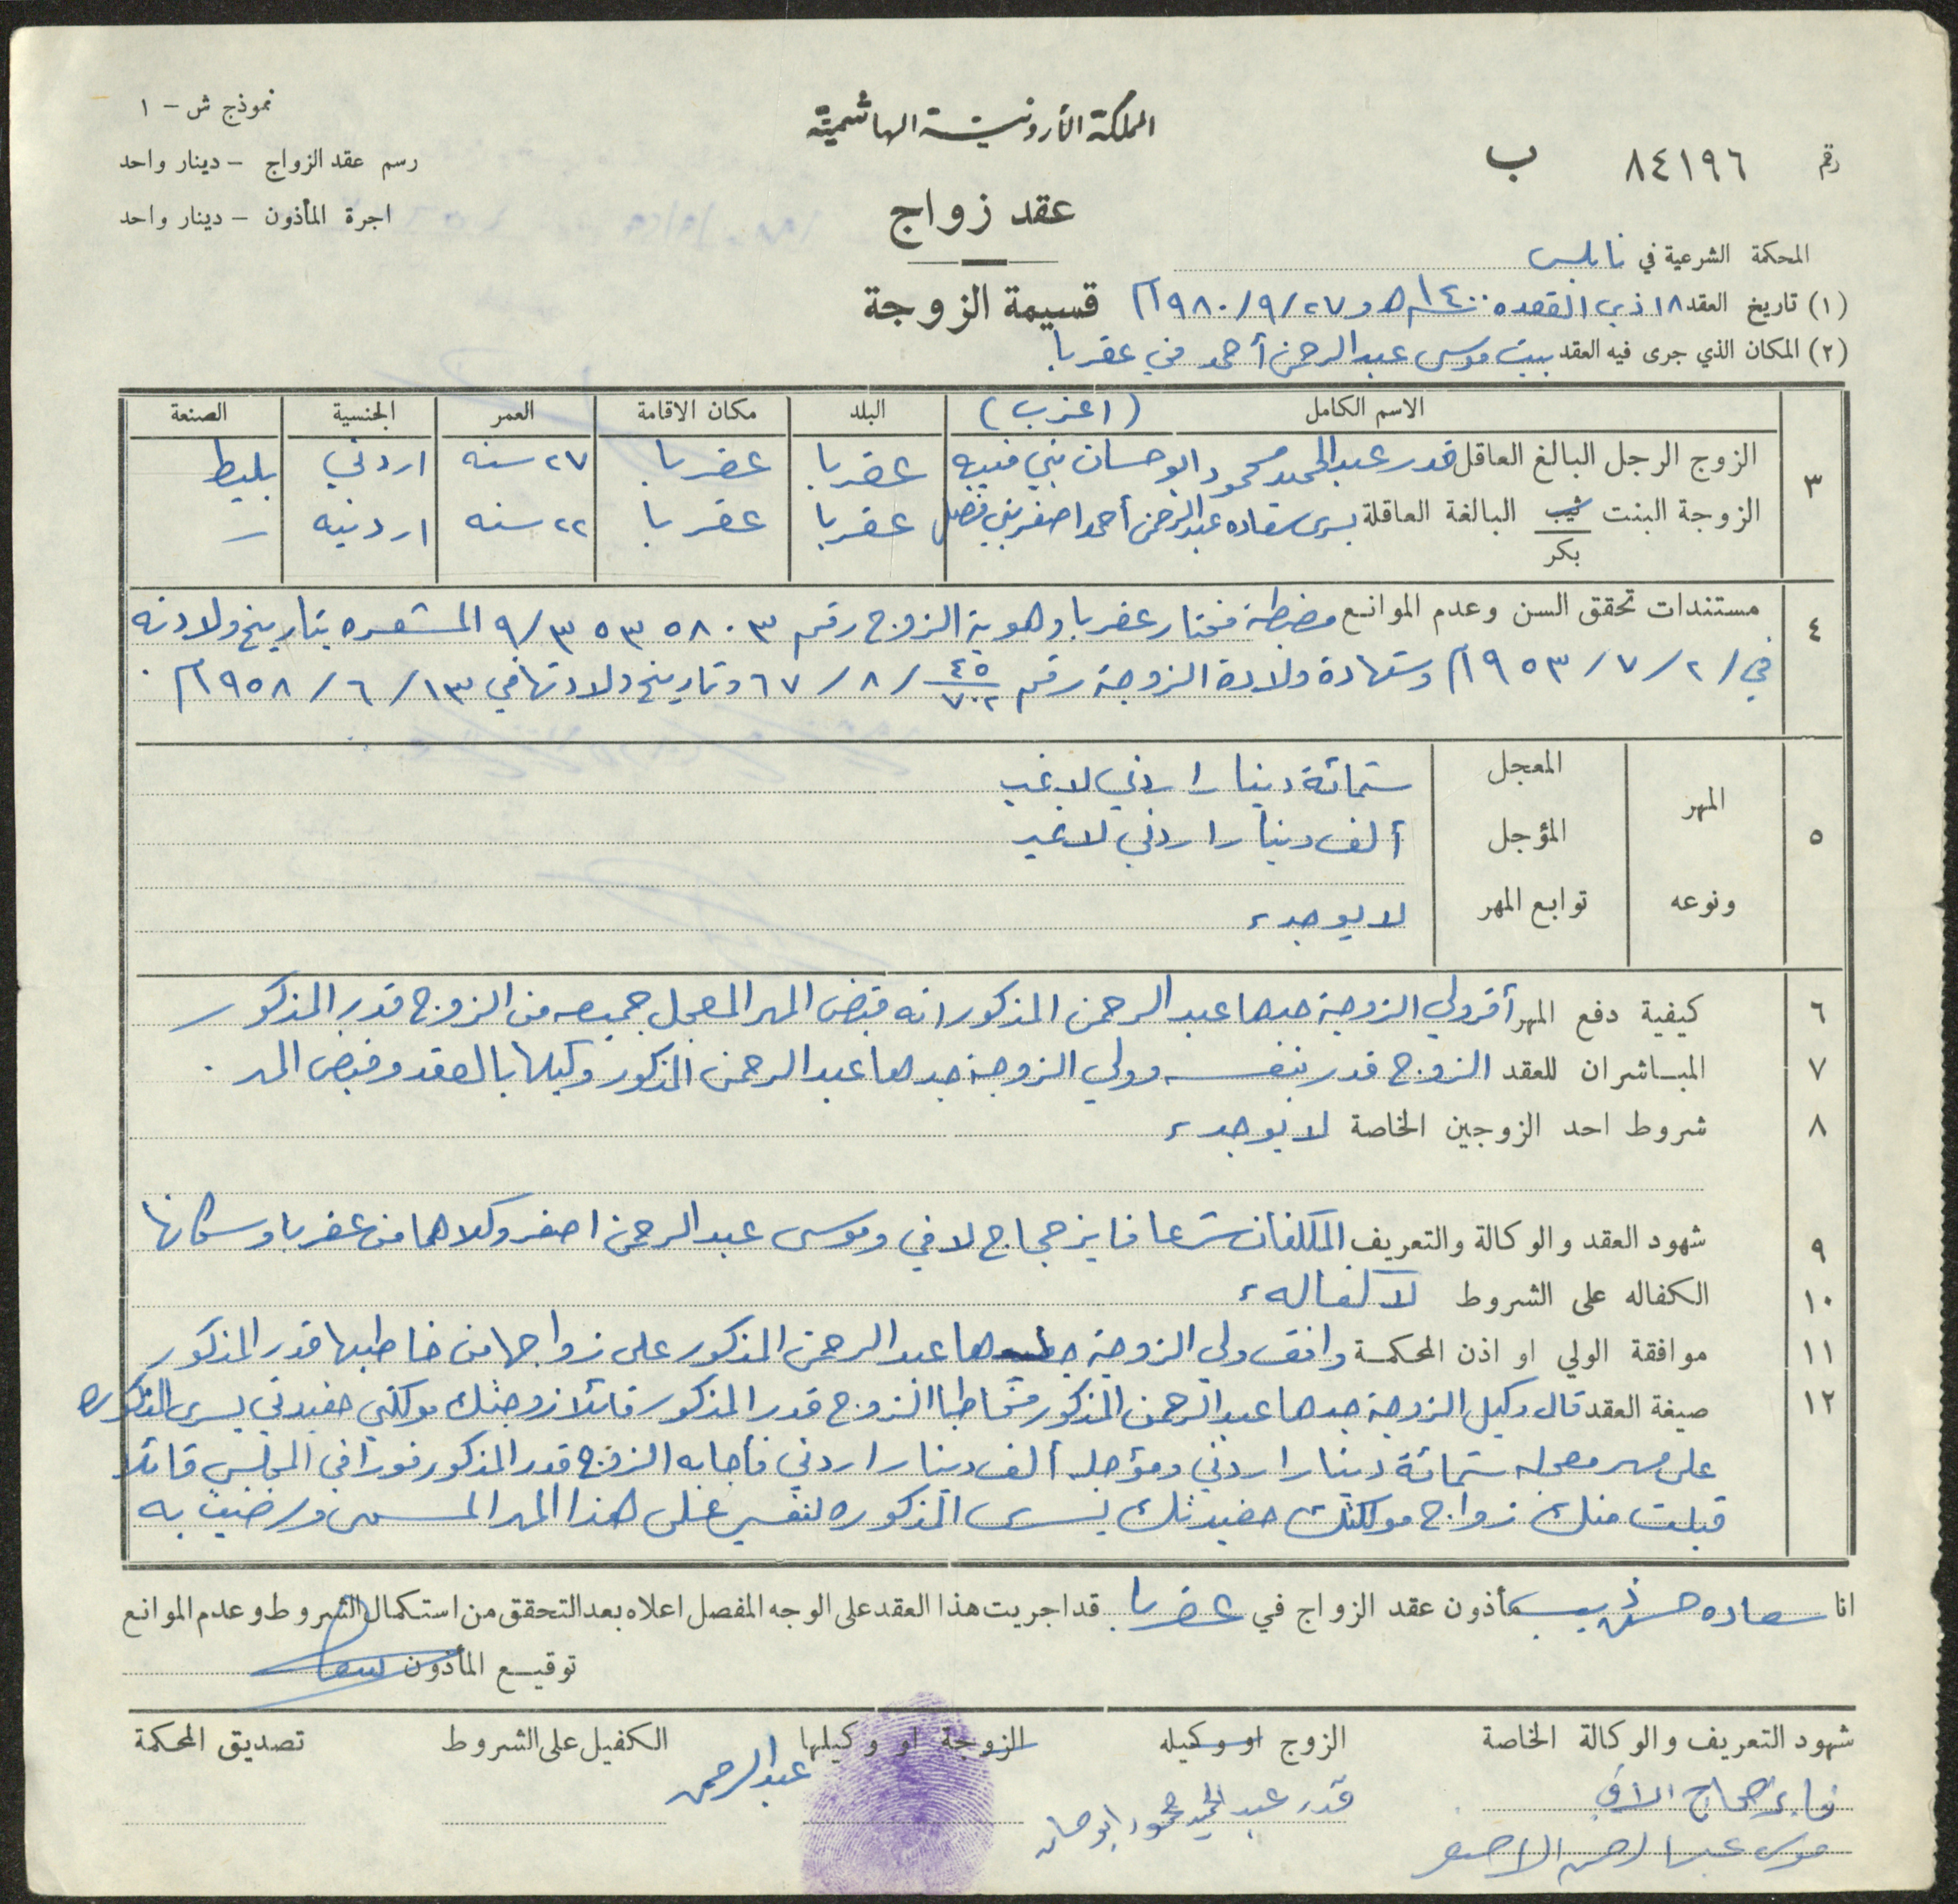 المملكة الأردنية الهاشمية
نموذج ش - ١
رسم عقد الزواج - دينار واحد
اجرة المأذون - دينار واحد
رقم ٨٤١٩٦ ب
عقد زواج
قسيمة الزوجة
المحكمة الشرعية في نابلس
(١) تاريخ العقد ١٨ ذي القعده ١٤٠٠هـ و ٢٧/٩/١٩٨٠م
(٢) المكان الذي جرى فيه العقد بيت موسى عبد الرحمن أحمد في عقربا
الاسم الكامل (اعزب) البلد مكان الاقامة العمر الجنسية الصنعة
٣
الزوج الرجل البالغ العاقل قدر عبد الحميد محمود ابو حسان بني منيه عقربا عقربا ٢٧ سنه اردني بليط
الزوجة البنت ثيب البالغة العاقلة يسرى سعاده عبد الرحمن أحمد اصفر بني فضل عقربا عقربا ٢٢ سنه اردنيه -
بكر
٤ مستندات تحقق السن وعدم الموانع مضبطة مختار عقربا وهوية الزوج رقم ٥٣٥٨٠٣ /٩/٣ المشعره بتاريخ ولادته
في ٢/٧/١٩٥٣م وشهادة ولادة الزوجة رقم ٤٥/٧٠٢ /٨/٦٧ وتاريخ ولادتها في ١٣/٦/١٩٥٨م .
٥ المهر ونوعه
المعجل ستمائة دينار اردني لا غير
المؤجل ألف دينار اردني لا غير
توابع المهر لا يوجد
٦ كيفية دفع المهر أقر ولي الزوجة جدها عبد الرحمن المذكور انه قبض المهر المعجل جميعه من الزوج قدر المذكور
٧ المباشران للعقد الزوج قدر بنفسه وولي الزوجة جدها عبد الرحمن المذكور وكيلها بالعقد وقبض المهر .
٨ شروط احد الزوجين الخاصة لا يوجد
٩ شهود العقد والوكالة والتعريف المكلفان شرعا فايز حجاج لافي وموسى عبد الرحمن اصفر وكلاهما من عقربا وسكانها
١٠ الكفاله على الشروط لا كفاله
١١ موافقة الولي او اذن المحكمة وافق ولي الزوجة جدها عبد الرحمن المذكور على زواجها من خاطبها قدر المذكور
١٢ صيغة العقد قال وكيل الزوجة جدها عبد الرحمن المذكور مخاطبا الزوج قدر المذكور قائلا زوجتك موكلتي حفيدتي يسرى المذكوره
على مهر معجله ستمائة دينار اردني ومؤجله ألف دينار اردني فأجابه الزوج قدر المذكور فورا في المجلس قائلا
قبلت منك زواج موكلتك حفيدتك يسرى المذكوره لنفسي على هذا المهر المسمى ورضيت به
انا سعاده حسن ذيب مأذون عقد الزواج في عقربا قد اجريت هذا العقد على الوجه المفصل اعلاه بعد التحقق من استكمال الشروط وعدم الموانع
توقيع المأذون
شهود التعريف والوكالة الخاصة الزوج او وكيله الزوجة او وكيلها الكفيل على الشروط تصديق المحكمة
فايز حجاج لافي قدر عبد الحميد محمود ابو حسان عبد الرحمن
موسى عبد الرحمن الاصفر